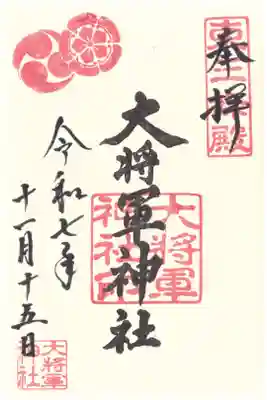 奉拝
大将軍神社
大将軍
神社印
令和七年
十一月十五日
大将軍
神社